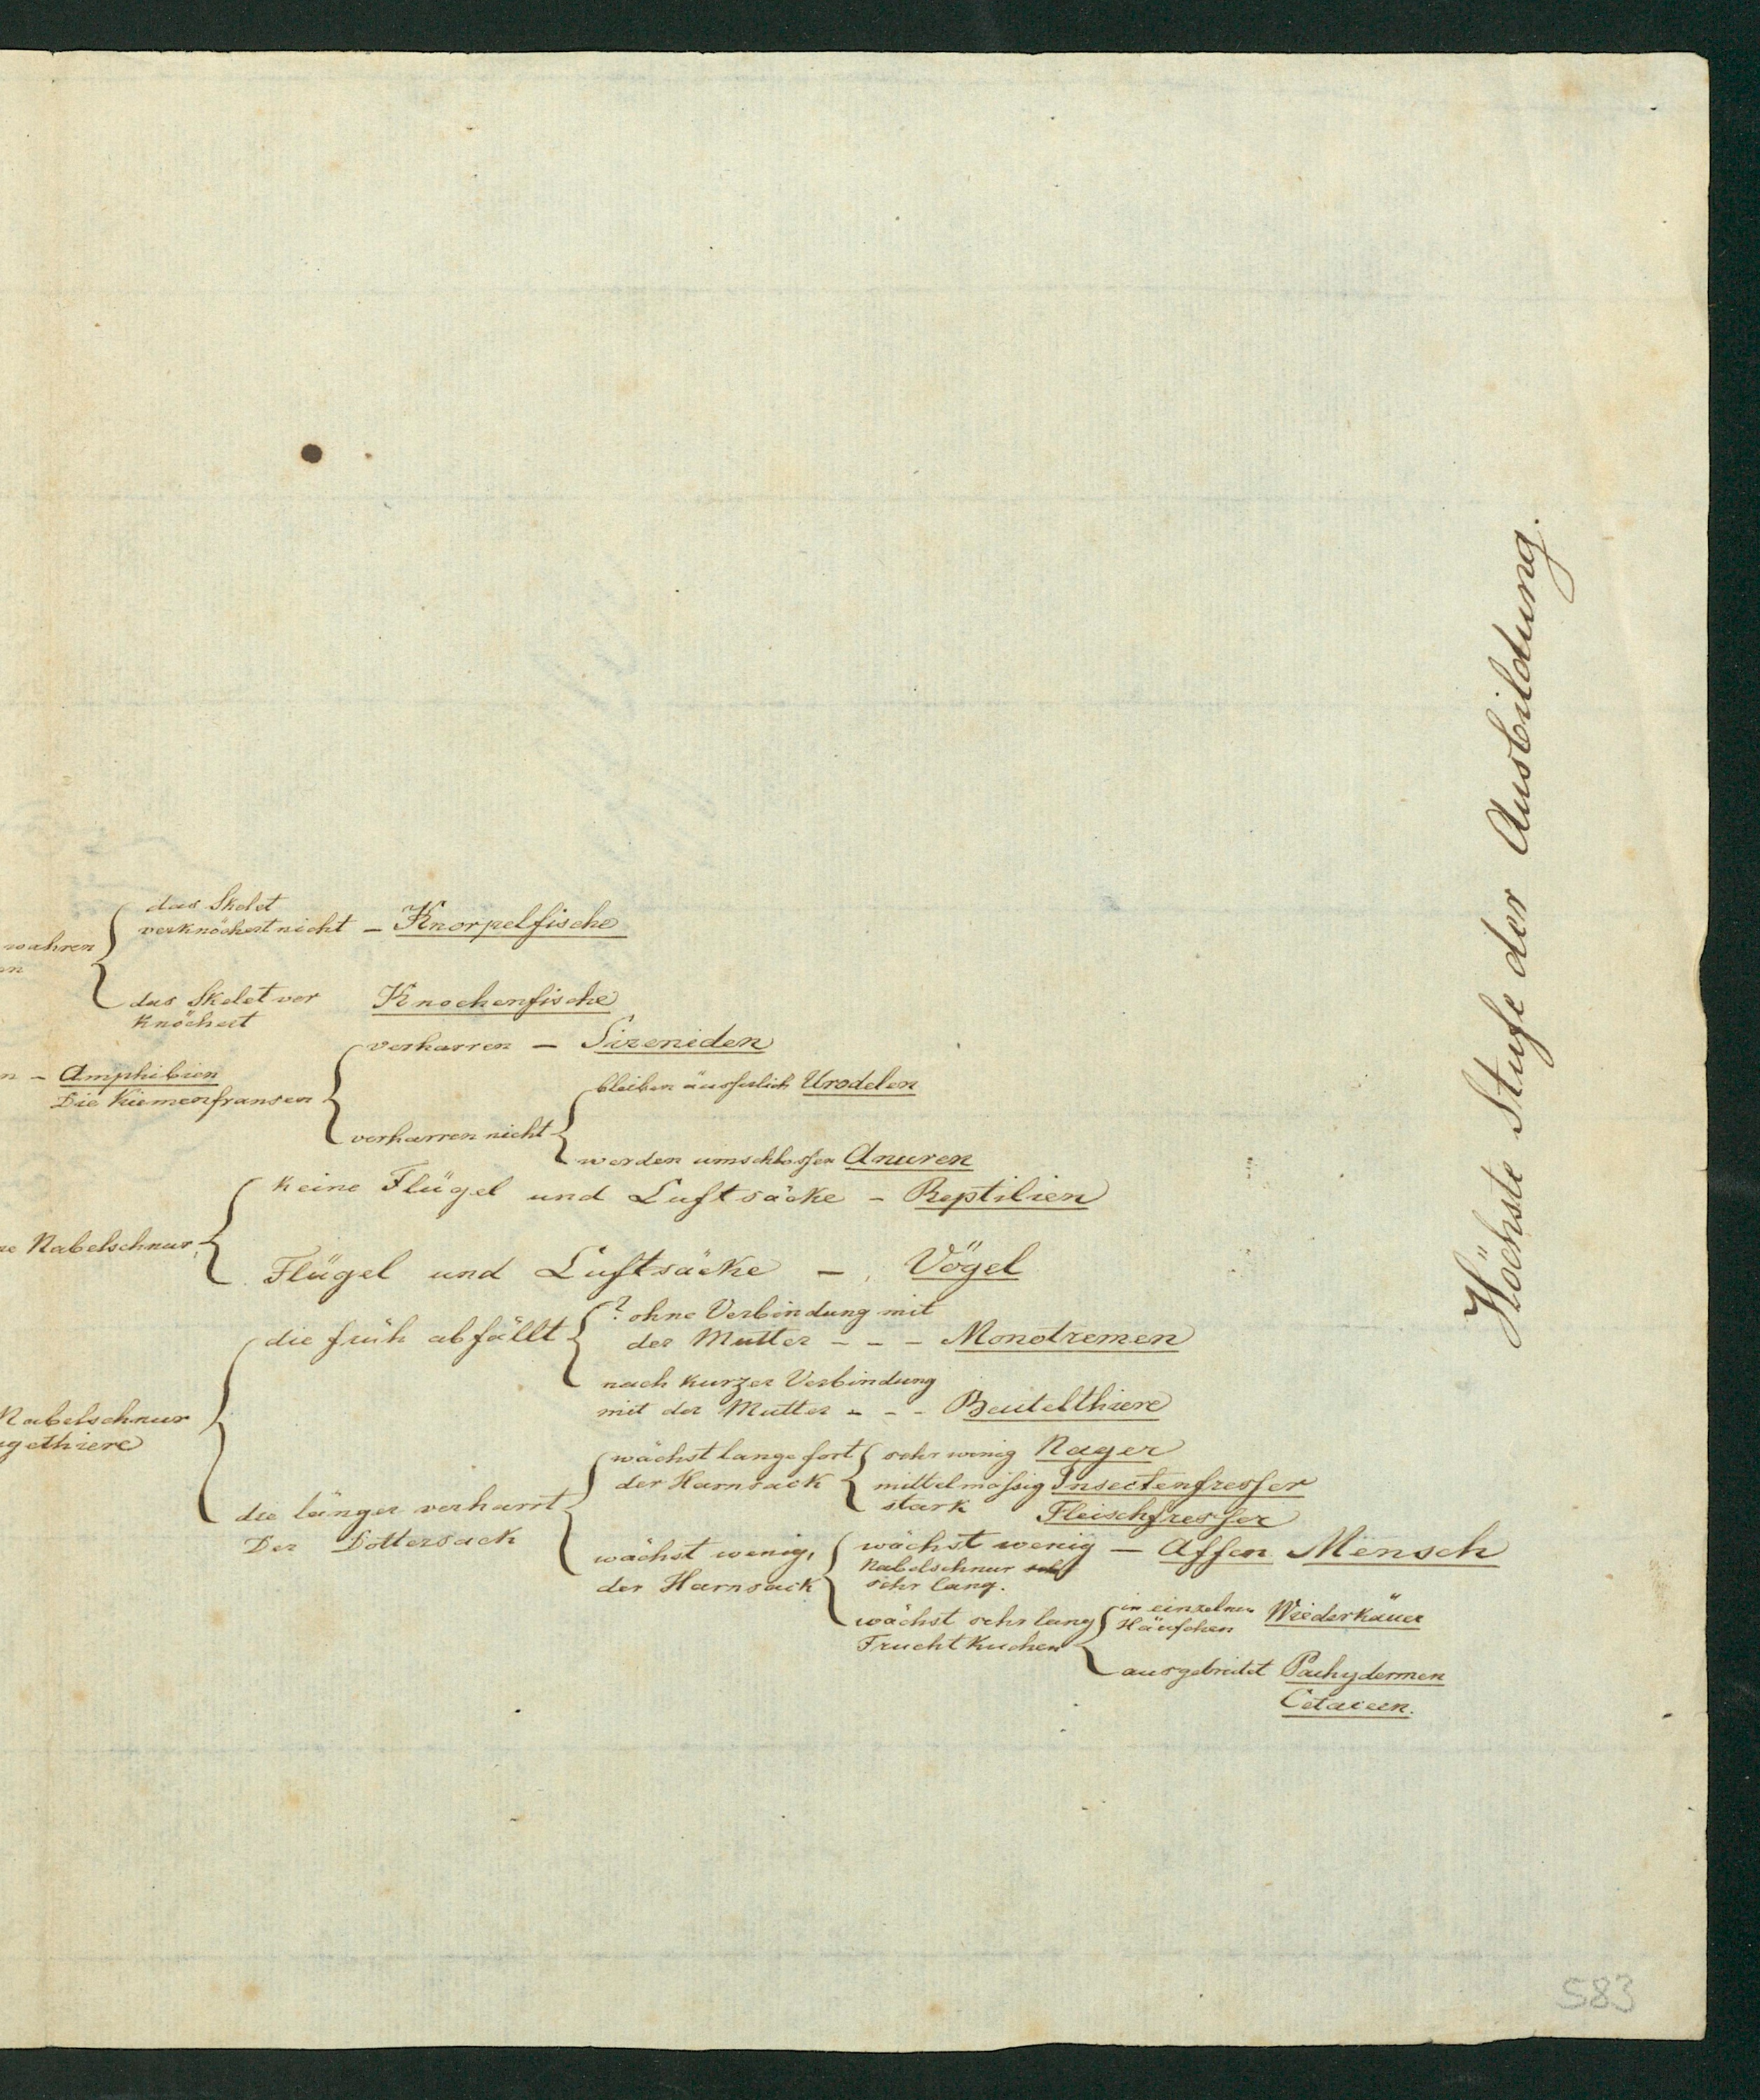 das Skelet
verknöchert nicht – Knorpelfische
wahren
en
das Skelet ver
knöchert
Knochenfische
verharren – Sireniden
n – Amphibien
Die Kiemenfransen
bleiben äusserlich Urodelen
verharren nicht
werden umschlossen Anuren
keine Flügel und Luftsäcke – Reptilien
ne Nabelschnur
Flügel und Luftsäcke – Vögel
? ohne Verbindung mit
der Mutter – – – Monotremen
die früh abfällt
nach kurzer Verbindung
mit der Mutter – – – Beutelthiere
Nabelschnur
ugethiere
wächst lange fort
der Harnsack
sehr wenig Nager
mittelmässig Insectenfresser
stark Fleischfresser
die länger verharrt
Der Dottersack
wächst wenig,
der Harnsack
wächst wenig – Affen Mensch
Nabelschnur seh
sehr lang.
wächst sehr lang
Fruchtkuchen
in einzelnen
Häufchen Wiederkäuer
ausgebreitet Pachydermen
Cetaceen.
Höchste Stufe der Ausbildung.
583